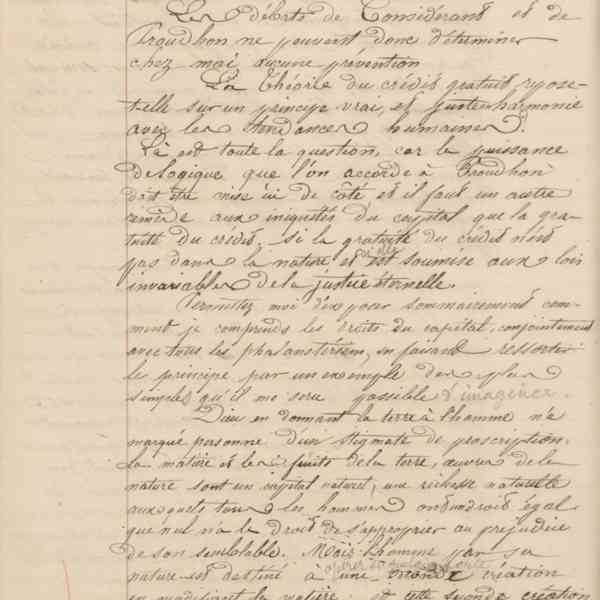 Les débats de Considérant et de
Proudhon ne peuvent donc déterminer
chez moi aucune prévention
La théorie du crédit gratuit repose-
t-elle sur un principe vrai, est juste harmonie
avec les tendances humaines?
Là est toute la question, car la puissance
de logique que l'on accorde à Proudhon
doit être mise ici de côté et il faut un autre
remède aux iniquités du capital que la gra-
tuité du crédit, si la gratuité du crédit n'est
pas dans la nature et est soumise aux lois
invariables de la justice éternelle.
Permettez moi d'exposer sommairement com-
ment je comprends les droits du capital, conjointement
avec tous les phalanstériens, en faisant ressortir
le principe par un exemple des plus
simples qu'il me sera possible d'imaginer.
Dieu en donnant la terre à l'homme n'a
marqué personne d'un stigmate de proscription.
la matière et les fruits de la terre, œuvres de la
nature sont un capital naturel, une richesse naturelle
auxquels tous les hommes ont un droit égal
que nul n'a le droit de s'approprier au préjudice
de son semblable. Mais l'homme par sa
nature est destiné à une seconde création
en modifiant la nature: et cette seconde création